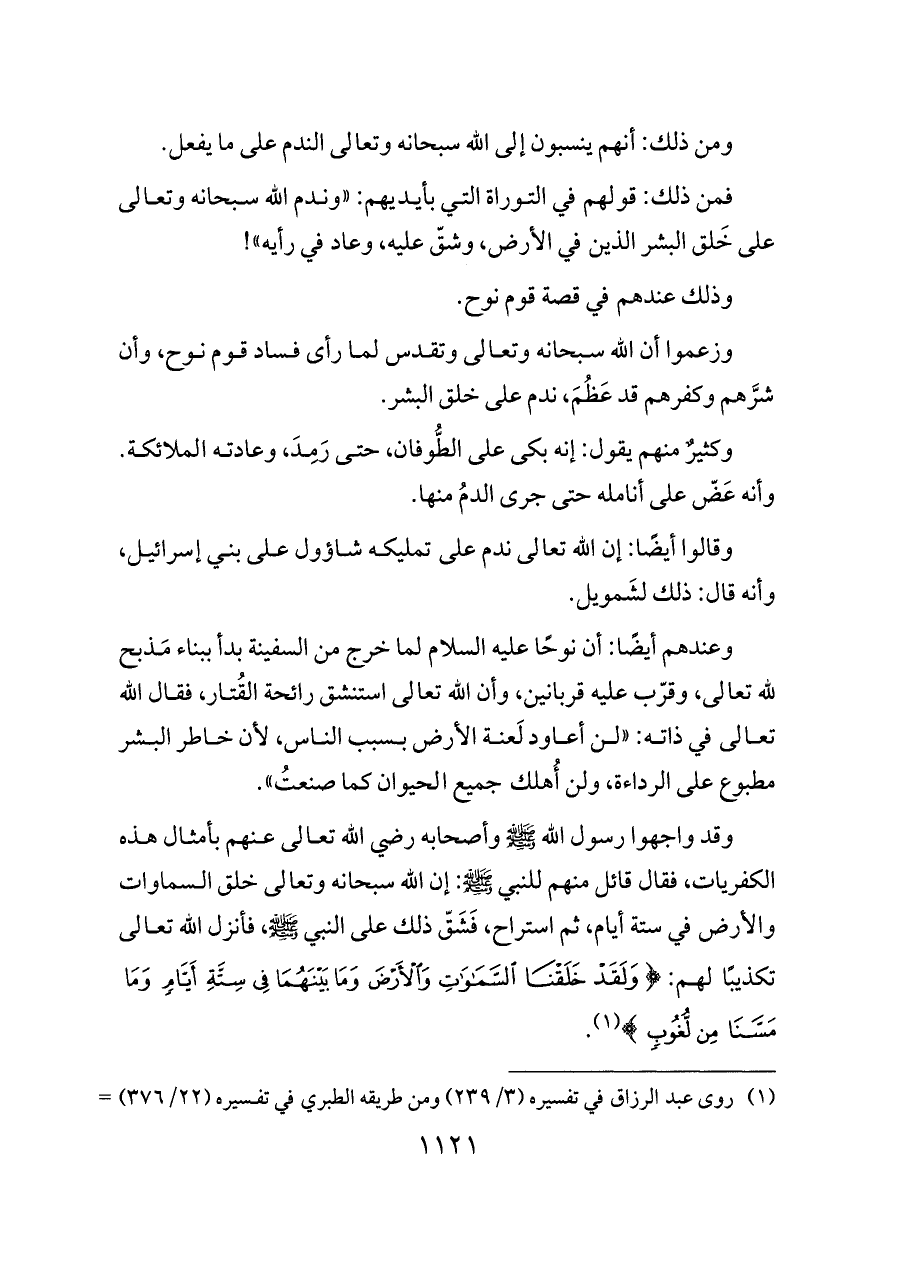 ومن ذلك: أنهم ينسبون إلى الله سبحانه وتعالى الندم على ما يفعل.
فمن ذلك: قولهم في التوراة التي بأيديهم: «وندم الله سبحانه وتعالى
على خَلق البشر الذين في الأرض، وشقّ عليه، وعاد في رأيه»!
وذلك عندهم في قصة قوم نوح.
وزعموا أن الله سبحانه وتعالى وتقدس لما رأى فساد قوم نوح، وأن
شرَّهم وكفرهم قد عَظُمَ، ندم على خلق البشر.
وكثيرٌ منهم يقول: إنه بكى على الطُّوفان، حتى رَمِدَ، وعادته الملائكة.
وأنه عَضّ على أنامله حتى جرى الدمُ منها.
وقالوا أيضًا: إن الله تعالى ندم على تمليكه شاؤول على بني إسرائيل،
وأنه قال: ذلك لشَمويل.
وعندهم أيضًا: أن نوحًا عليه السلام لما خرج من السفينة بدأ ببناء مَذبح
لله تعالى، وقرّب عليه قربانين، وأن الله تعالى استنشق رائحة القُتار، فقال الله
تعالى في ذاته: «لن أعاود لَعنة الأرض بسبب الناس، لأن خاطر البشر
مطبوع على الرداءة، ولن أُهلك جميع الحيوان كما صنعتُ».
وقد واجهوا رسول الله ﷺ وأصحابه رضي الله تعالى عنهم بأمثال هذه
الكفريات، فقال قائل منهم للنبي ﷺ: إن الله سبحانه وتعالى خلق السماوات
والأرض في ستة أيام، ثم استراح، فَشَقّ ذلك على النبي ﷺ، فأنزل الله تعالى
تكذيبًا لهم: ﴿وَلَقَدْ خَلَقْنَا ٱلسَّمَٰوَٰتِ وَٱلْأَرْضَ وَمَا بَيْنَهُمَا فِى سِتَّةِ أَيَّامٍ وَمَا
مَسَّنَا مِن لُّغُوبٍ﴾(١).
(١) روى عبد الرزاق في تفسيره (٣/ ٢٣٩) ومن طريقه الطبري في تفسيره (٢٢/ ٣٧٦) =
١١٢١